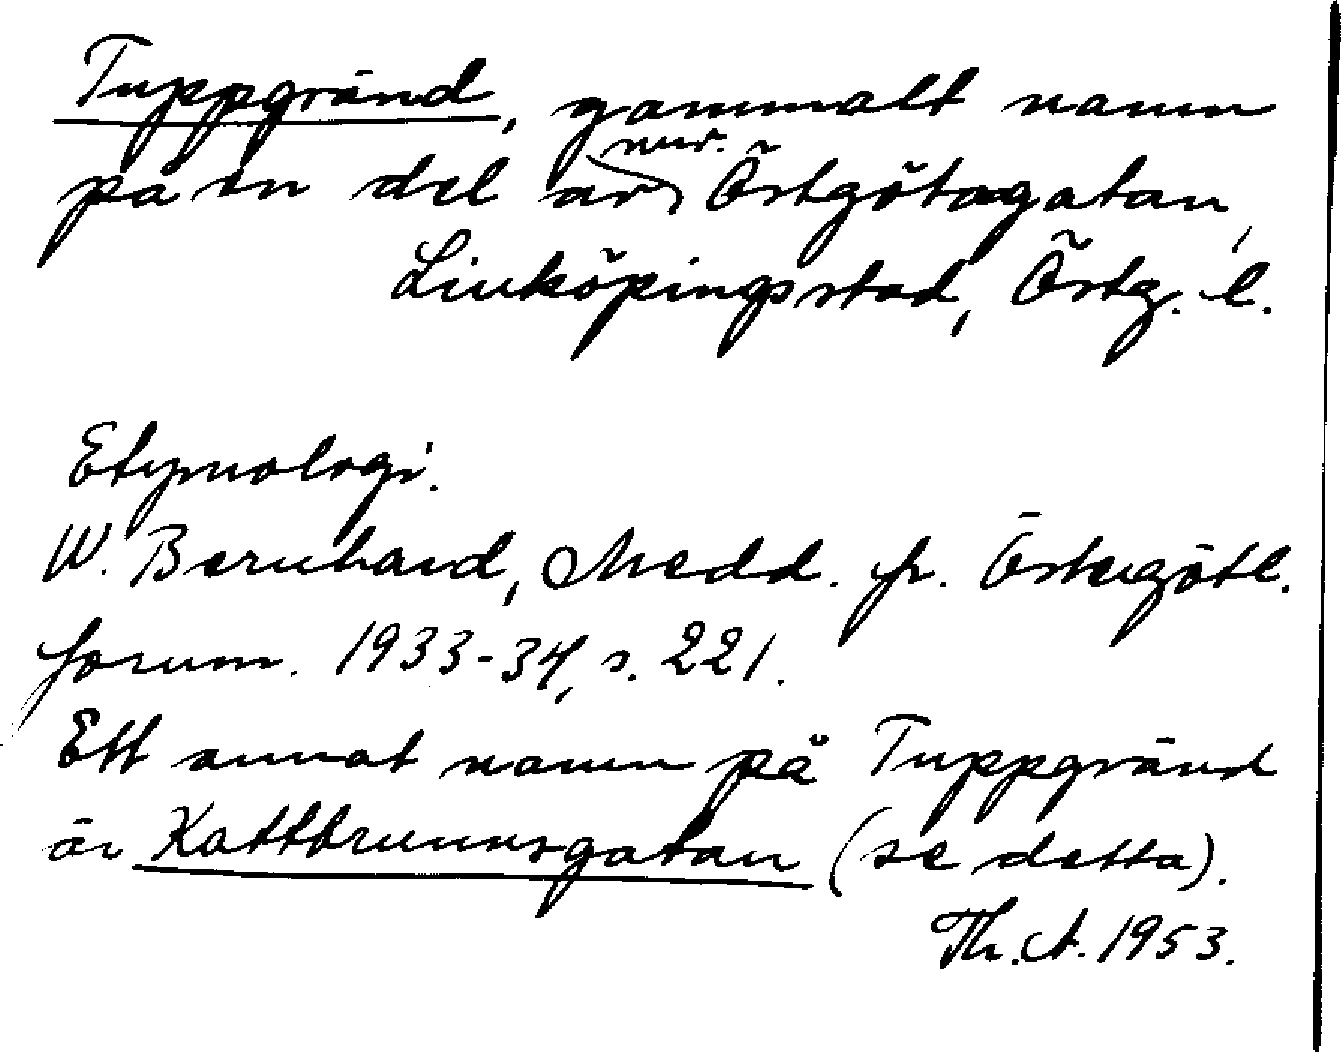 Tuppgränd, gammalt namn
på en del av nuv. Östgötagatan,
Linköpings stad, Östg. l.
Etymologi.
W. Bernhard, Medd. fr. Östergötl.
fornm. 1933-34, s. 221.
Ett annat namn på Tuppgränd
är Kattbrunnsgatan (se detta).
Th. A. 1953.